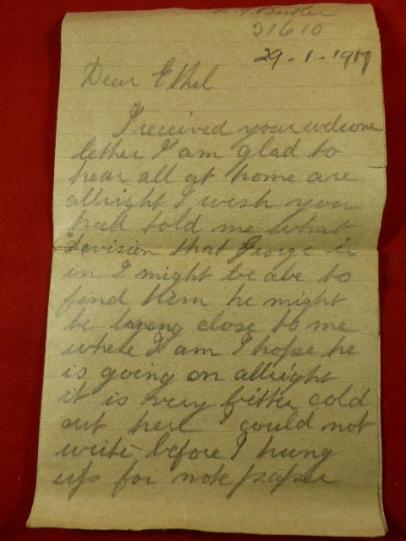 Butler
21610
29-1-1917
Dear Ethel
I received your welcome
letter I am glad to
hear all at home are
allright I wish you
had told me what
devision that George is
in I might be abe to
find them he might
be laying close to me
where I am I hope he
is going on allright
it is very bitter cold
out here I could not
write before I hung
up for note paper